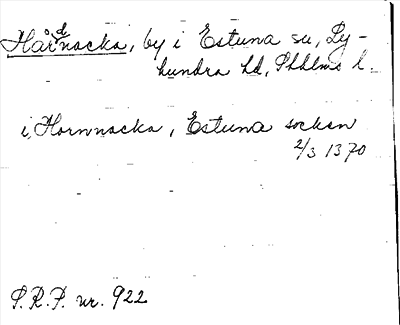 Hårdnacka, by i Estuna sn, Ly-
hundra hd, Sthlms l.
i Hornnacka, Estuna socken
2/3 1370
S.R.P. nr. 922